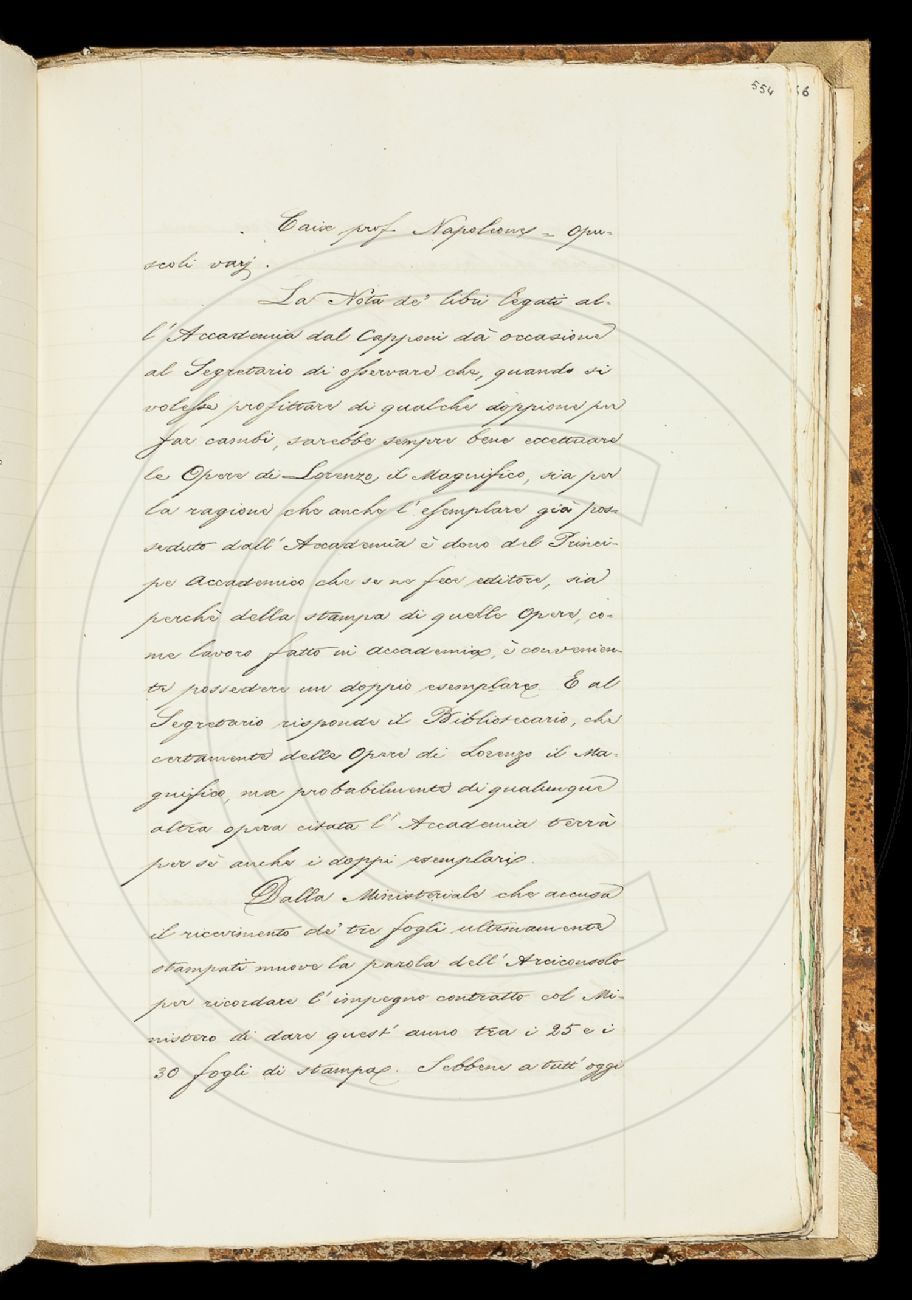 554
56
Caix prof. Napoleone = Opu-
scoli varj.
La Nota de' libri legati al-
l'Accademia dal Capponi dà occasione
al Segretario di osservare che, quando si
volesse profittare di qualche doppione per
far cambi, sarebbe sempre bene eccettuare
le Opere di Lorenzo il Magnifico, sia per
la ragione che anche l'esemplare già pos-
seduto dall'Accademia è dono del Princi-
pe Accademico che se ne fece editore, sia
perchè della stampa di quelle Opere, co-
me lavoro fatto in Accademia, è convenien-
te possedere un doppio esemplare. E al
Segretario risponde il Bibliotecario, che
certamente delle Opere di Lorenzo il Ma-
gnifico, ma probabilmente di qualunque
altra opera citata l'Accademia terrà
per sè anche i doppi esemplari.
Dalla Ministeriale che accusa
il ricevimento de' tre fogli ultimamente
stampati muove la parola dell'Arciconsolo
per ricordare l'impegno contratto col Mi-
nistero di dare quest'anno tra i 25 e i
30 fogli di stampa. Sebbene a tutt'oggi